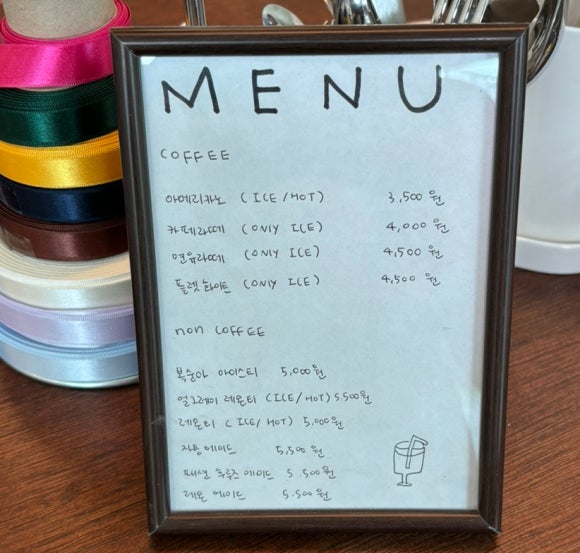 MENU
COFFEE
아메리카노 (ICE/HOT) 3,500원
카페라떼 (ONLY ICE) 4,000원
연유라떼 (ONLY ICE) 4,500원
플렛화이트 (ONLY ICE) 4,500원
non COFFEE
복숭아 아이스티 5,000원
얼그레이 레몬티 (ICE/HOT) 5.500원
레몬티 (ICE/HOT) 5,000원
자몽에이드 5,500원
패션 후르츠 에이드 5.500원
레몬 에이드 5.500원